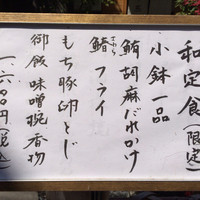 和定食(限定)
小鉢一品
鰤胡麻だれかけ
鰆フライ
さわら
もち豚卵とじ
御飯 味噌椀 香物
一六〇〇円(税込)